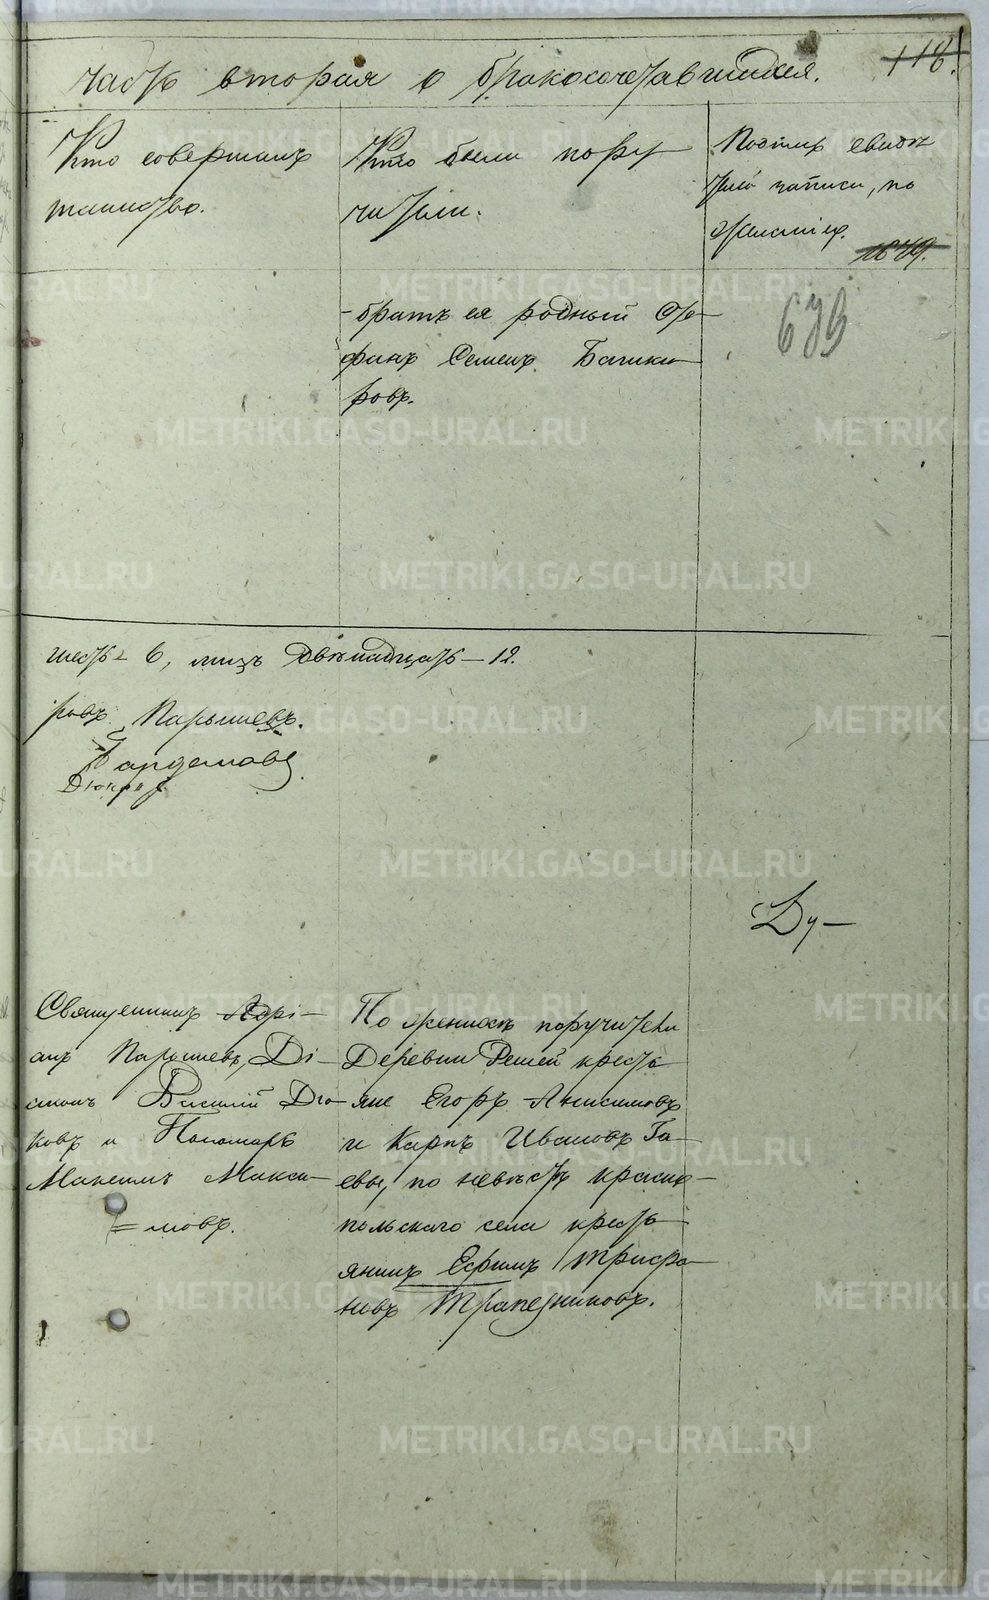 часть вторая о бракосочетавшихся.
118.
Кто совершалъ
таинство.
Кто были пору
чители.
Подпись свидѣ
телей записи, по
желанію.
1649.
639
братъ ея родный Сте
фанъ Семеновъ Башки
ровъ.
шесть 6, лицъ двѣнадцать 12.
ровъ Парышевъ.
Священникъ Адрі-
анъ Парышевъ, Ді-
аконъ Василій Дю-
ковъ и Пономарь
Максимъ Макси-
=мовъ.
По женихѣ поручители
Деревни Решей кресть
яне Егоръ Анисимовъ
и Карпъ Ивановъ Га-
евы, по невѣстѣ красно-
польскаго села кресть
янинъ Ефимъ Трифо-
новъ Трапезниковъ.
Ду-
METRIKI.GASO-URAL.RU